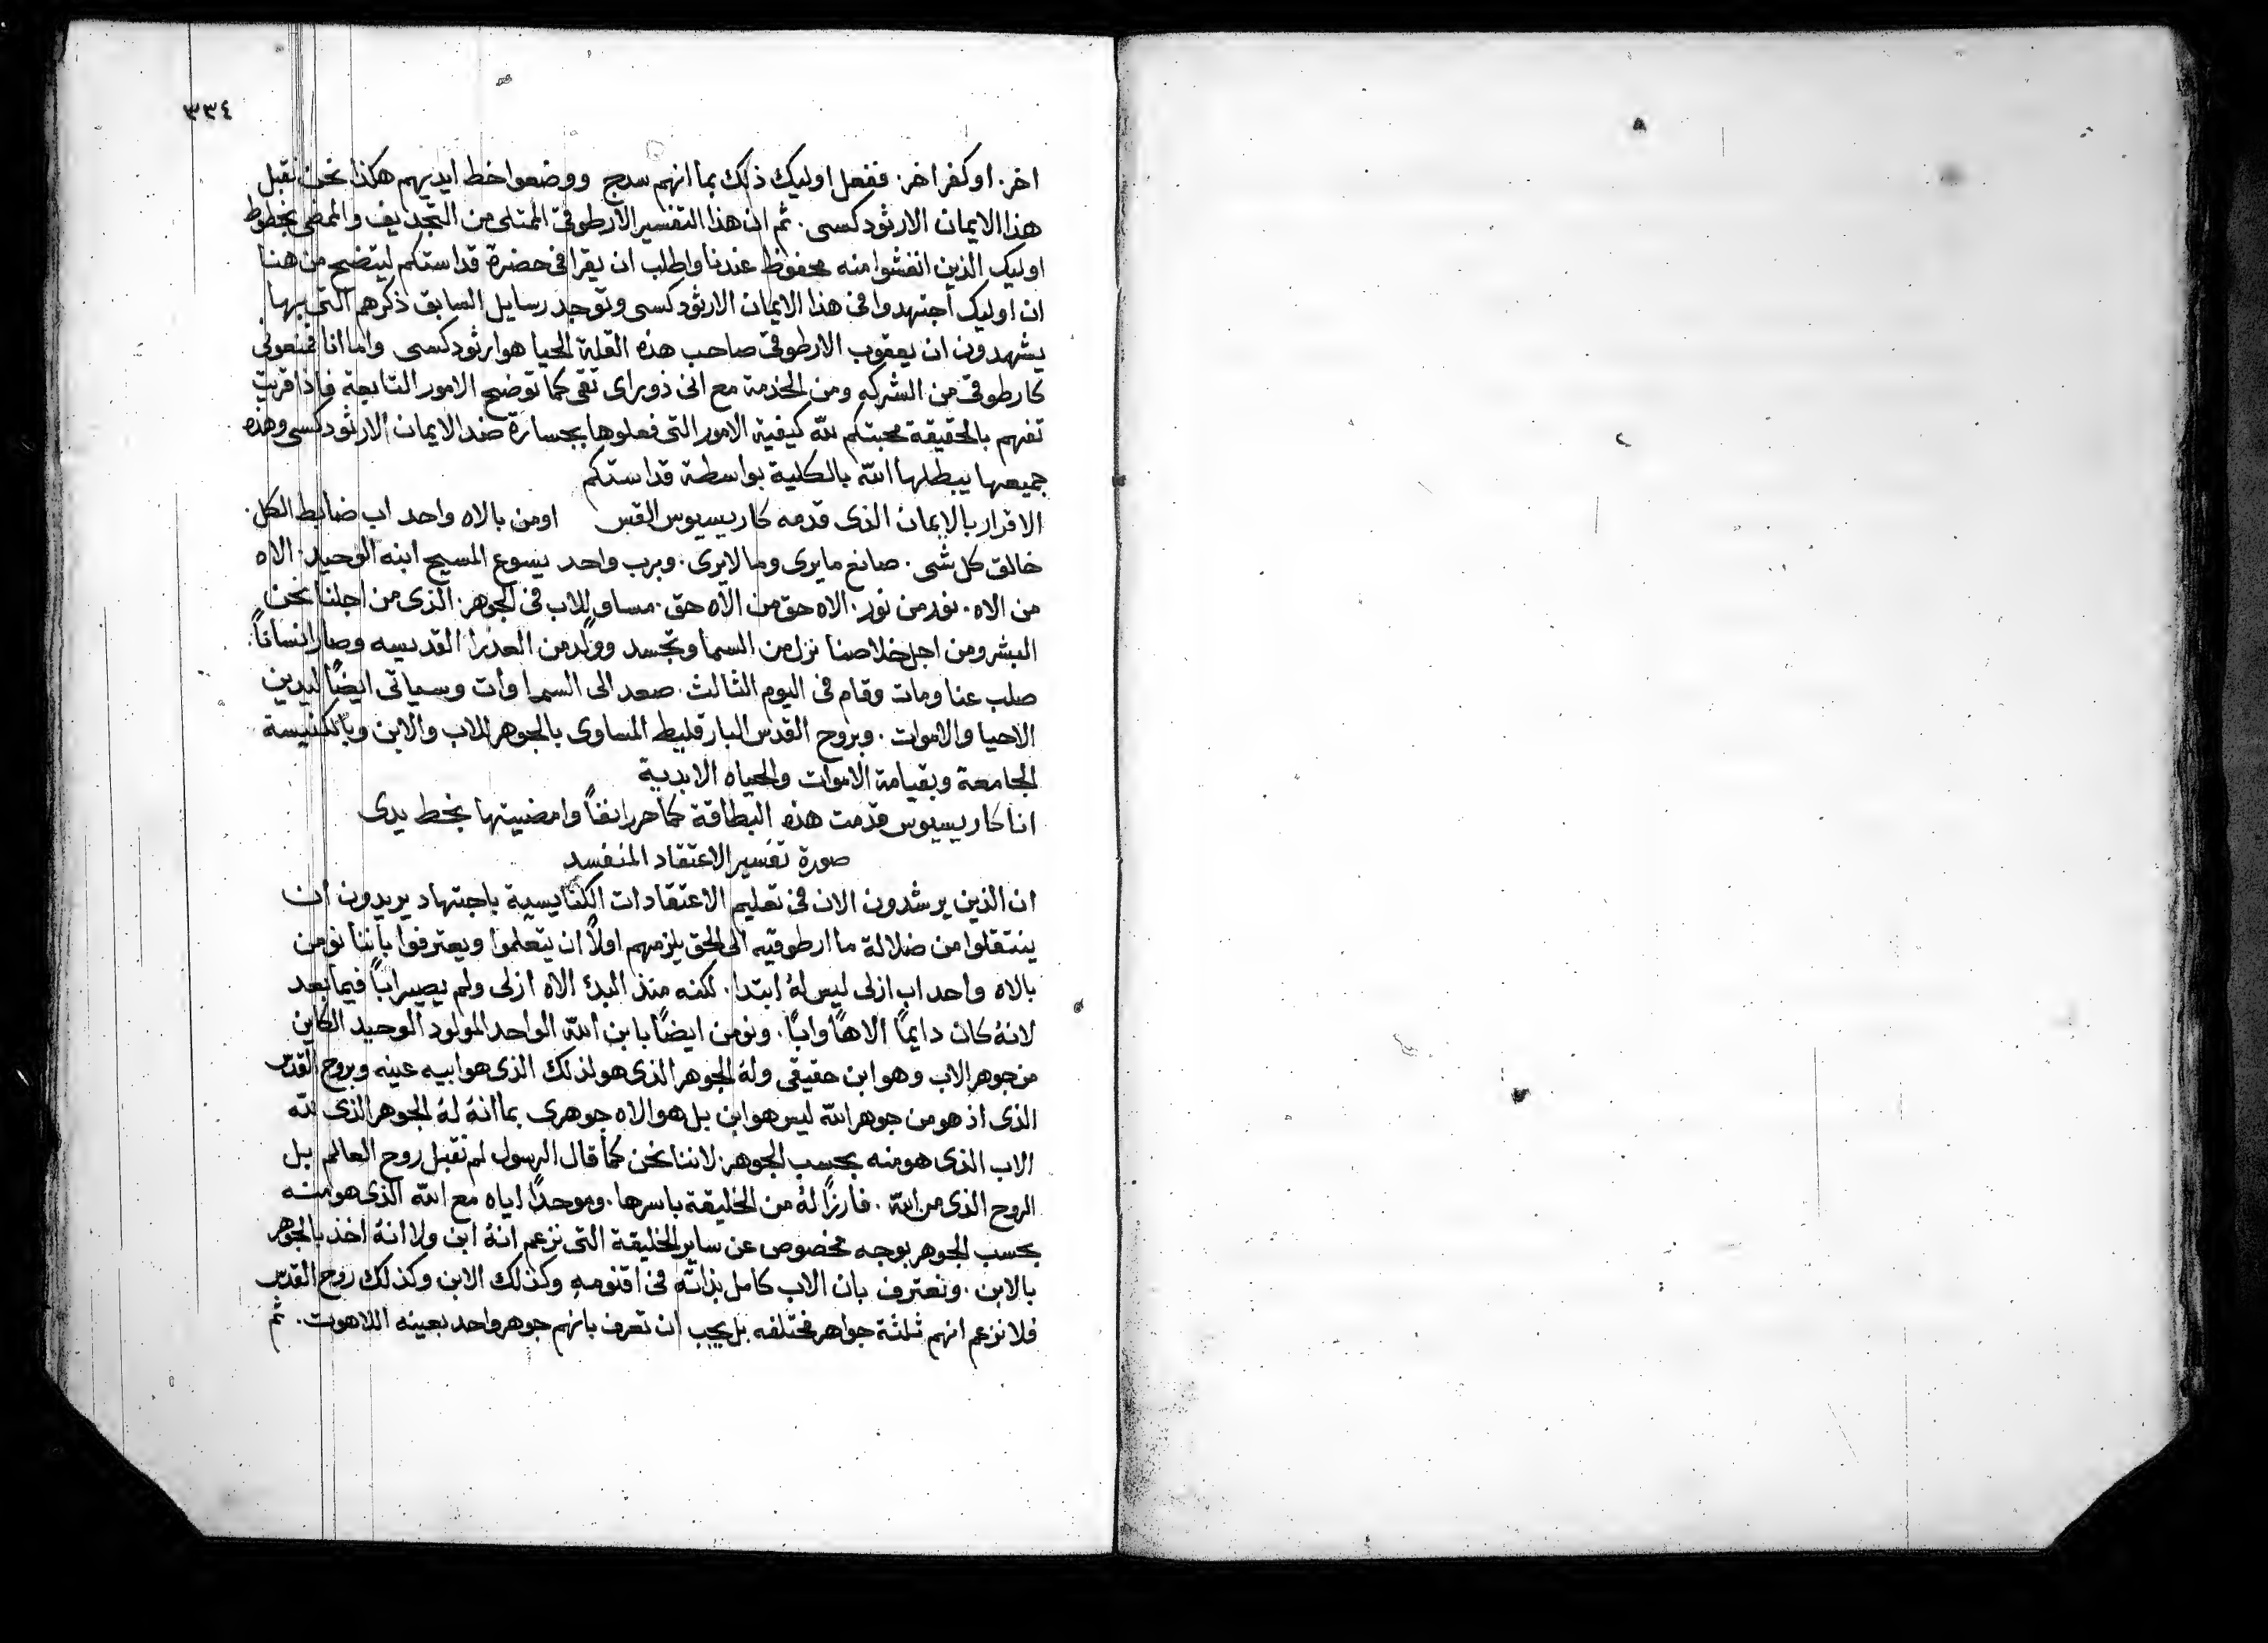 ٣٣٤
اخر. او كفر اخر. ففعل اوليك ذلك بما انهم سدج ووضعوا خط ايديهم هكذا نحن نقبل
هذا الايمان الارثودكسى. ثم ان هذا التفسير الارطوقى الممتلى من التجديف والممضى بخطوط
اوليك الذين انغشوا منه محفوظ عندنا واطلب ان يقرا فى حضرة قداستكم ليتضح من هنا
ان اوليك اجتهدوا فى هذا الايمان الارثودكسى وتوجد رسايل السابق ذكرهم التى بها
يشهدون ان يعقوب الارطوقى صاحب هذه القلة الحيا هو ارثودكسى واما انا فمنعونى
كارطوقى من الشركه ومن الخدمة مع انى ذو راى تقى كما توضح الامور التابعة فاذا قريت
تفهم بالحقيقة محبتكم لله كيفية الامور التى فعلوها بجسارة ضد الايمان الارثودكسى وهذه
جميعها يبطلها الله بالكلية بواسطة قداستكم
الاقرار بالايمان الذى قدمه كاريسيوس القس اومن بالاه واحد اب ضابط الكل.
خالق كل شى. صانع ما يرى وما لا يرى. وبرب واحد يسوع المسيح ابنه الوحيد. الاه
من الاه. نور من نور. الاه حق من الاه حق. مساوٍ للاب فى الجوهر. الذى من اجلنا نحن
البشر ومن اجل خلاصنا نزل من السما وتجسد وولد من العذرا القديسه وصار انساناً.
صلب عنا ومات وقام فى اليوم الثالث. صعد الى السماوات وسياتى ايضاً ليدين
الاحيا والاموات. وبروح القدس البارقليط المساوى بالجوهر للاب والابن وبالكنيسة
الجامعة وبقيامة الاموات والحياه الابدية
انا كاريسيوس قدمت هذه البطاقة كما حرر انفاً وامضيتها بخط يدى
صورة تفسير الاعتقاد المنفسد
ان الذين يرشدون الان فى تعليم الاعتقادات الكنايسية باجتهاد يريدون ان
ينتقلوا من ضلالة ما ارطوقيه الى الحق يلزمهم اولاً ان يتعلموا ويعترفوا باننا نومن
بالاه واحد اب ازلى ليس لهُ ابتدا. لكنه منذ البدئ الاه ازلى ولم يصير اباً فيما بعد
لانهُ كان دايماً الاهاً واباً. ونومن ايضاً بابن الله الواحد المولود الوحيد الكاين
من جوهر الاب وهو ابن حقيقى ولهُ الجوهر الذى هو لذلك الذى هو ابيه عينه وبروح القدس
الذى اذ هو من جوهر الله ليس هو ابن بل هو الاه جوهرى بما انهُ لهُ الجوهر الذى لله
الاب الذى هو منه بحسب الجوهر. لاننا نحن كما قال الرسول لم نقبل روح العالم بل
الروح الذى من الله. فارزاً لهُ من الخليقة باسرها. وموحداً اياه مع الله الذى هو منه
بحسب الجوهر بوجه مخصوص عن ساير الخليقة التى نزعم انهُ ابن ولا انهُ اخذ بالجوهر
بالابن. ونعترف بان الاب كامل بذاته فى اقنومهِ وكذلك الابن وكذلك روح القدس
فلا نزعم انهم ثلثة جواهر مختلفه بل يجب ان نعرف بانهم جوهر واحد بعينه اللاهوت. ثم